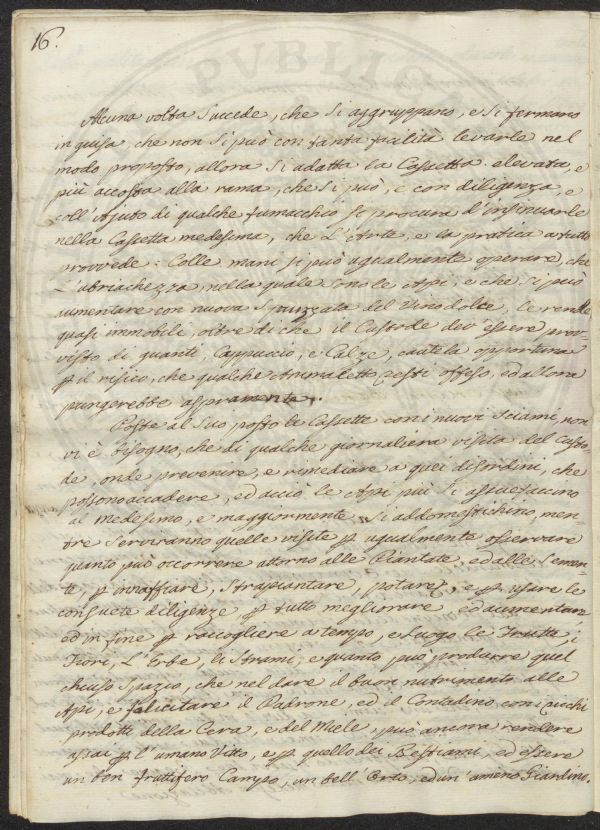 16.
PVBLIC
Alcuna volta Succede, che Si aggruppano, e Si fermano
in guisa, che non Si può con tanta facilità levarle nel
modo proposto, allora Si adatta la Cassetta elevata, e
più accosta alla rama, che Si può, e con diligenza, e
coll' Ajuto di qualche fumacchio si procura d'insinuarle
nella Cassetta medesima, che L'Arte, e la pratica a tutto
provvede: Colle mani si può ugualmente operare, che
L'abriachezza, nella quale Sono le Api, e che Si può
aumentare con nuova Spruzzata del Vino dolce, le rende
quasi immobili, oltre di che il Custode dev essere prov-
visto di guanti, Cappuccio, e Calze, cautela opportuna
p il risico, che qualche Animaletto resti offeso, ed allora
pungerebbe aspramente.
Poste al Suo posto le Cassette con i nuovi Sciami, non
vi è bisogno, che di qualche giornaliera visita del Custo-
de, onde prevenire, e rimediare a quei disordini, che
possono accadere, ed acciò le Api più Si assuefaccino
al medesimo, e maggiormente Si addomestichino, men-
tre Serviranno quelle visite p ugualmente osservare
quanto può occorrere attorno alle Piantate, ed alle Semen-
te, p innaffiare, Strapiantare, potare, e p usare le
consuete diligenze p tutto megliorare, ed aumentare
ed in fine p raccogliere a tempo, e luogo le Frutta, i
Fiori, L'Erbe, li Strami, e quanto può produrre quel
chiuso Spazio, che nel dare il buon nutrimento alle
Api, e felicitare il Padrone, ed il Contadino con i ricchi
prodotti della Cera, e del Miele, può ancora rendere
assai p l'umano Vitto, e p quello dei Bestiami, ed essere
un ben fruttifero Campo, un bell'Orto, ed un'ameno Giardino.